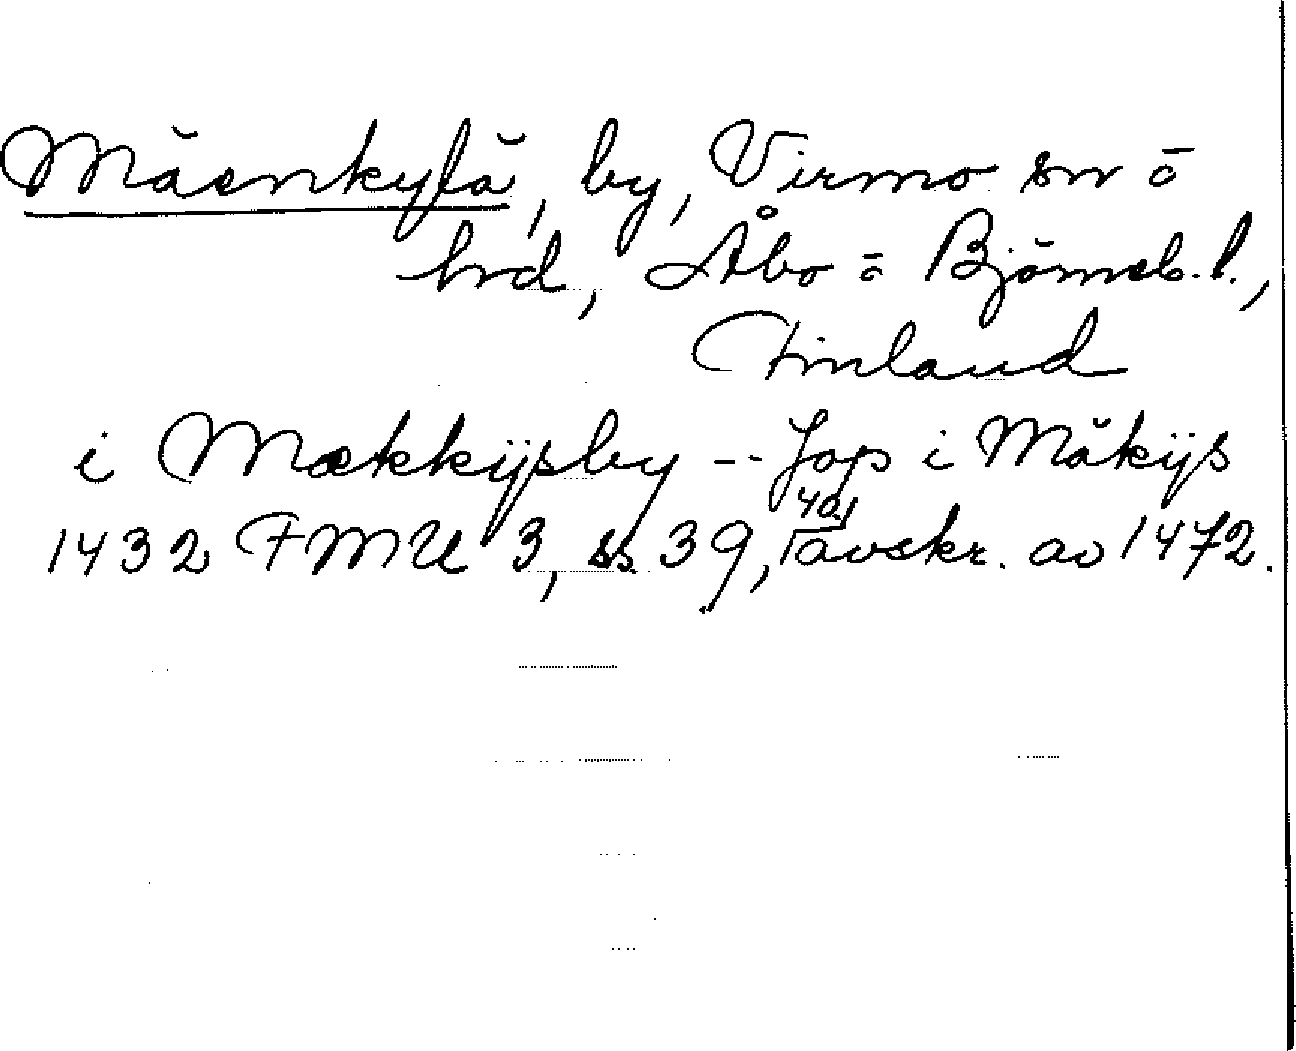 Mäenkylä, by, Virmo sn o
hrd, Åbo o Björneb. l.,
Finland
i Mækkijsby -- Jap i Mäkijs
1432 FMU 3, s. 39, 401 avskr. av 1472.